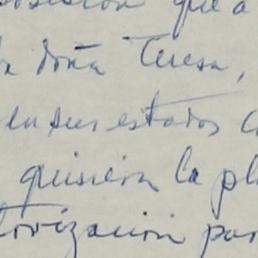 que a
doña Teresa,
en sus estados
quisiera la pl
torización par